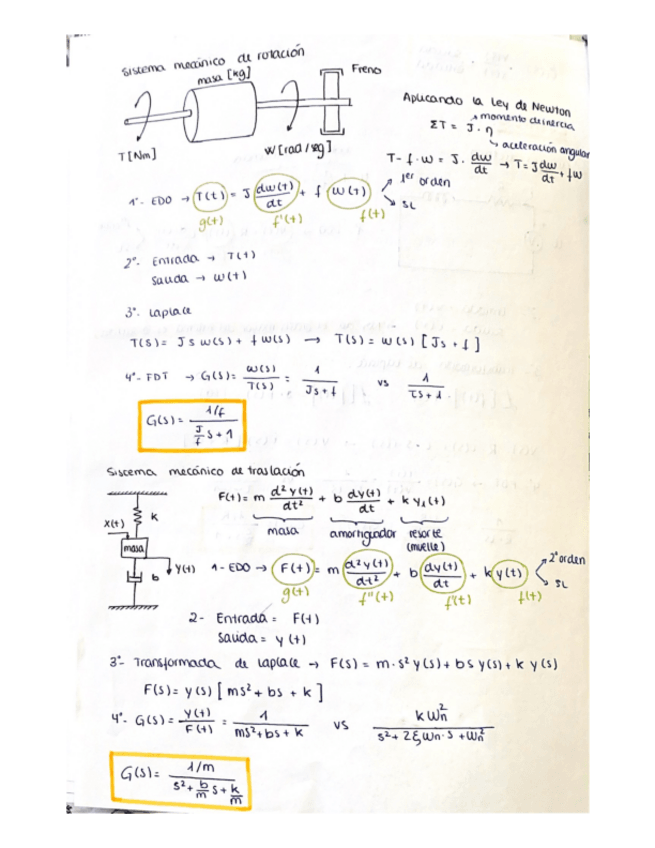 Sistema mecánico de rotación
masa [kg]
Freno
T [Nm]
W [rad/sg]
Aplicando la Ley de Newton
momento de inercia
ΣT = J · η
aceleración angular
T - f · w = J · dw/dt → T = J dw/dt + fw
1º- EDO → T(t) = J dw(t)/dt + f w(t)
1er orden
SL
g(t) f'(t) f(t)
2º- Entrada → T(t)
Salida → w(t)
3º- Laplace
T(s) = J s w(s) + f w(s) → T(s) = w(s) [Js + f]
4º- FDT → G(s) = w(s)/T(s) = 1/(Js + f) vs 1/(τs + 1)
G(s) = (1/f)/(J/f s + 1)
Sistema mecánico de traslación
F(t) = m d²y(t)/dt² + b dy(t)/dt + k y₁(t)
masa amortiguador resorte
(muelle)
K
X(t)
masa
Y(t)
b
1- EDO → F(t) = m d²y(t)/dt² + b dy(t)/dt + k y(t)
2º orden
SL
g(t) f''(t) f'(t) f(t)
2- Entrada = F(t)
Salida = y(t)
3º- Transformada de Laplace → F(s) = m · s² y(s) + bs y(s) + k y(s)
F(s) = y(s) [ms² + bs + k]
4º- G(s) = y(t)/F(t) = 1/(ms² + bs + k) vs k Wn²/(s² + 2ξWn·s + Wn²)
G(s) = (1/m)/(s² + b/m s + k/m)